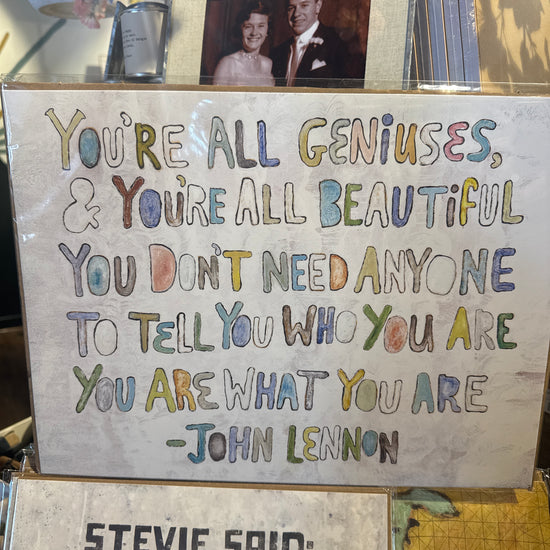 YOU'RE ALL GENIUSES,
& YOU'RE ALL BEAUTIFUL
YOU DON'T NEED ANYONE
TO TELL YOU WHO YOU ARE
YOU ARE WHAT YOU ARE
-JOHN LENNON
STEVIE SAID: